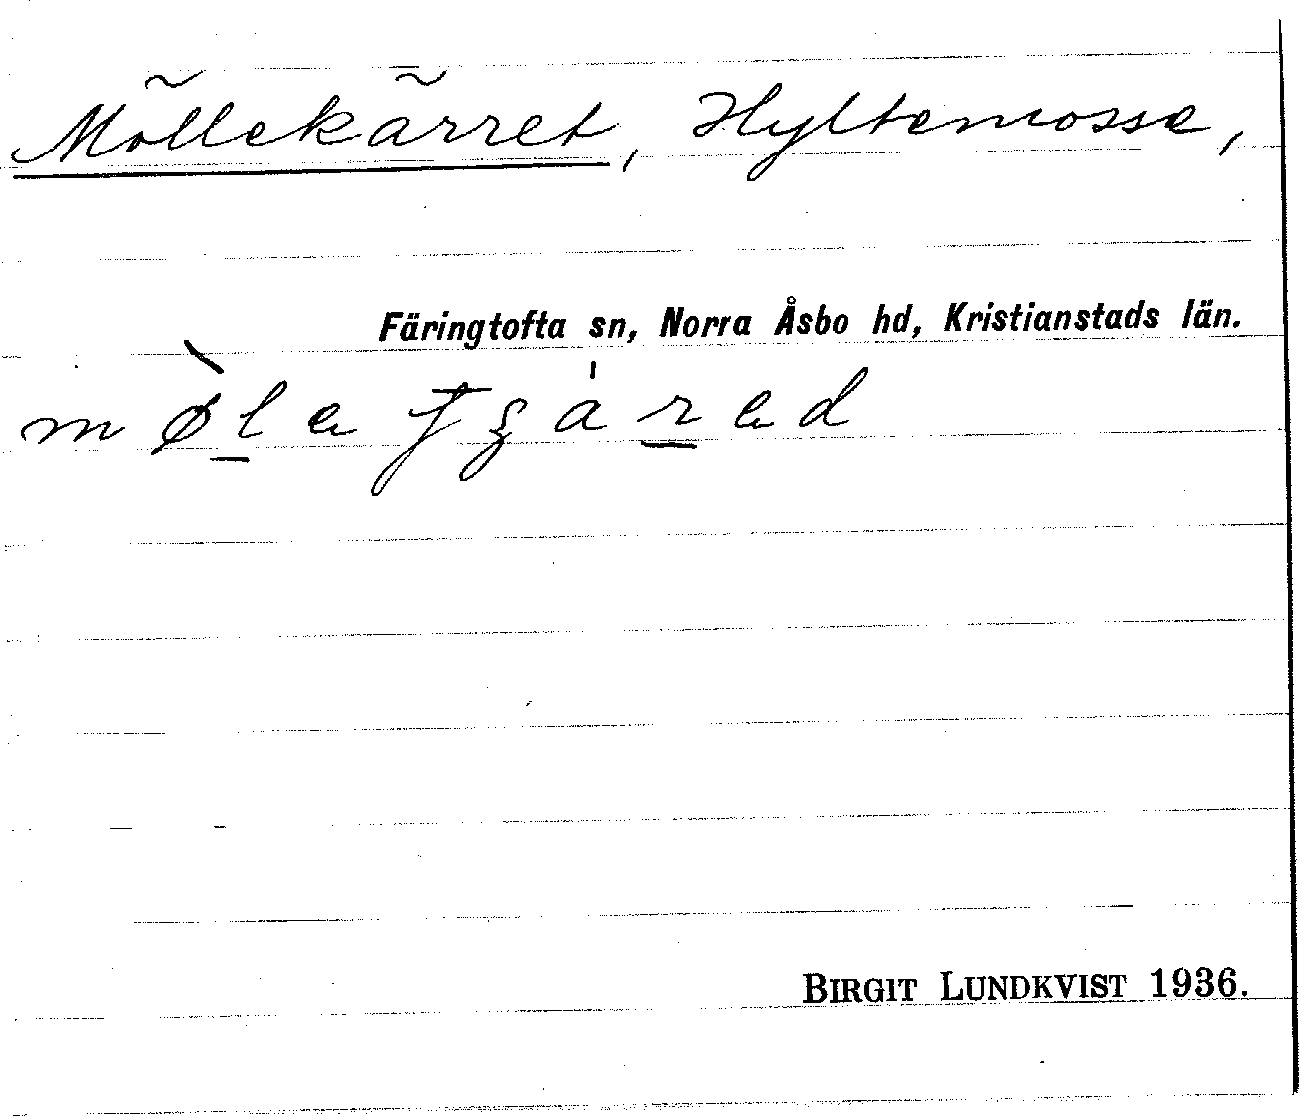 Möllekärret, Hyltemosse,
Färingtofta sn, Norra Åsbo hd, Kristianstads län.
BIRGIT LUNDKVIST 1936.